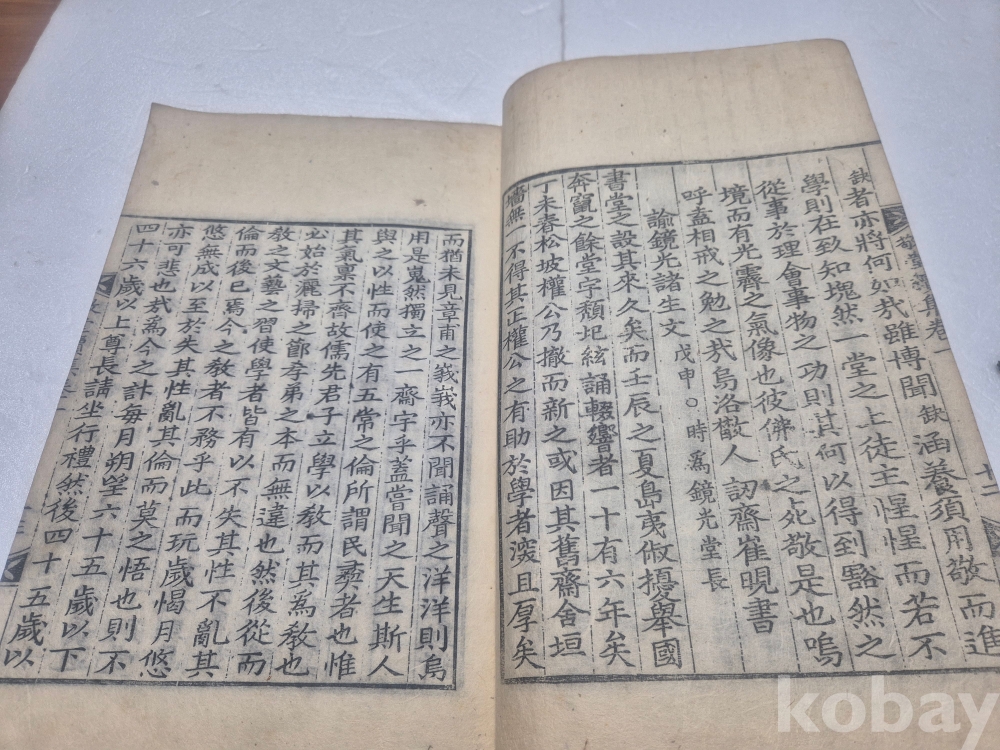 缺者亦將何如㢤雖博聞缺涵養須用敬而進
學則在致知塊然一堂之上徒主惺惺而若不
從事於理會事物之功則其何以得到豁然之
境而有光霽之氣像也彼佛氏之死敬是也嗚
呼盍相戒之勉之㢤烏洛散人訒齋崔晛書
諭鏡光諸生文戊申○時爲鏡光堂長
書堂之設其來久矣而壬辰之夏島夷俶擾舉國
奔竄之餘堂宇頹圮絃誦輟響者一十有六年矣
丁未春松坡權公乃撤而新之或因其舊齋舍垣
墻無不得其正權公之有助於學者深且厚矣
而猶未見章甫之峩峩亦不聞誦聲之洋洋則烏
用是嵬然獨立之一齋字乎盖嘗聞之天生斯人
與之以性而使之有五常之倫所謂民彝者也惟
其氣禀不齊故儒先君子立學以敎而其爲敎也
必始於灑掃之節孝弟之本而無違也然後從而
敎之文藝之習使學者皆有以不失其性不亂其
倫而後已焉今之敎者不務乎此而玩歲愒月悠
悠無成以至於失其性亂其倫而莫之悟也則不
亦可悲也㢤爲今之計每月朔望六十五歲以下
四十六歲以上尊長請坐行禮然後四十五歲以
集卷一
十二
kobay